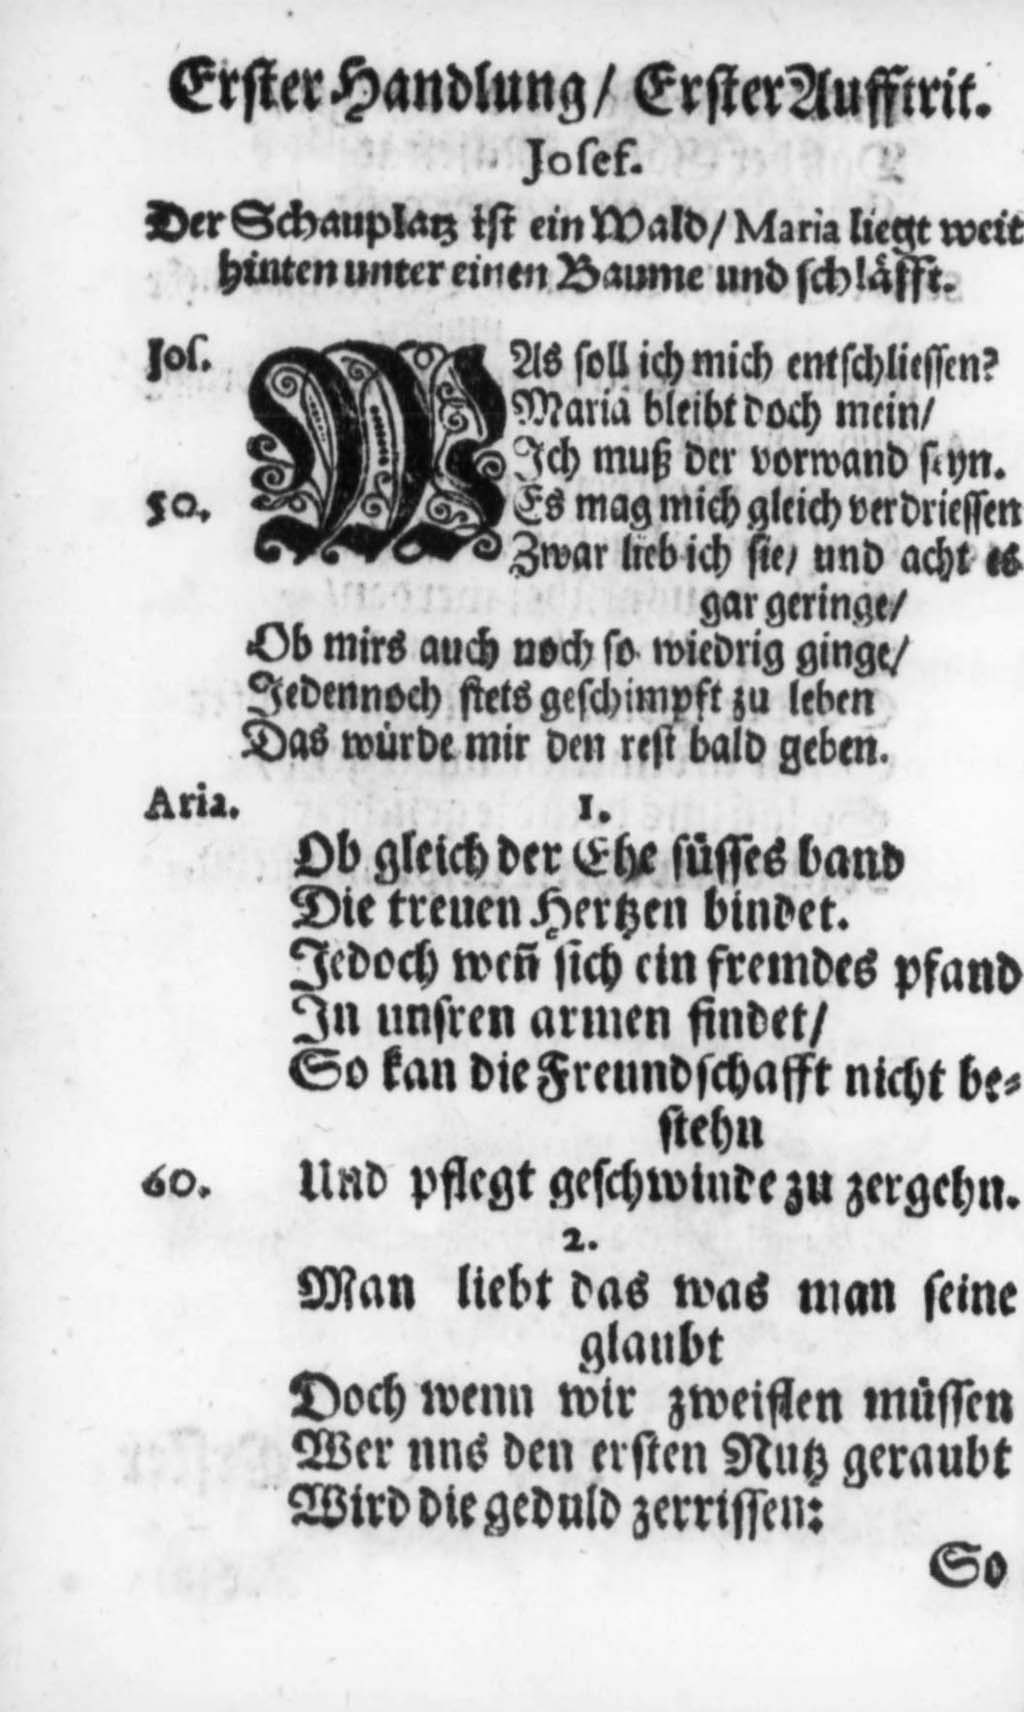 Erster Handlung/ Erster Aufftrit.
Josef.
Der Schauplatz ist ein Wald/ Maria liegt weit
hinten unter einen Baume und schläfft.
Jos. WAs soll ich mich entschliessen?
Maria bleibt doch mein/
Ich muß der vorwand seyn.
50. Es mag mich gleich verdriessen
Zwar lieb ich sie/ und acht es
gar geringe/
Ob mirs auch noch so wiedrig ginge/
Jedennoch stets geschimpft zu leben
Das würde mir den rest bald geben.
Aria. 1.
Ob gleich der Ehe süsses band
Die treuen Hertzen bindet.
Jedoch weñ sich ein fremdes pfand
In unsren armen findet/
So kan die Freundschafft nicht be-
stehn
60. Und pflegt geschwinde zu zergehn.
2.
Man liebt das was man seine
glaubt
Doch wenn wir zweiflen müssen
Wer uns den ersten Nutz geraubt
Wird die geduld zerrissen:
So